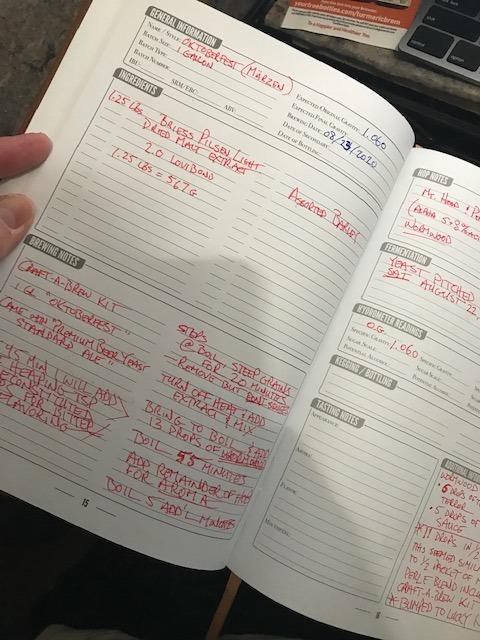 yourfreebottles.com/turmericbrem
To a Happier and Healthier You
GENERAL INFORMATION
NAME / STYLE: OKTOBERFEST (MÄRZEN)
BATCH SIZE: 1 GALLON
BATCH TYPE:
BATCH NUMBER:
IBU:
SRM/EBC:
ABV:
EXPECTED ORIGINAL GRAVITY: 1.060
EXPECTED FINAL GRAVITY:
BREWING DATE: 08/23/2020
DATE OF SECONDARY:
DATE OF BOTTLING:
INGREDIENTS
1.25 LBS - BRIESS PILSEN LIGHT
DRIED MALT EXTRACT
2.0 LOVIBOND
1.25 LBS = 567G
ASSORTED BARLEY
BREWING NOTES
CRAFT-A-BREW KIT
1 GL "OKTOBERFEST"
CAME WITH "PREMIUM BEER YEAST
STANDARD ALE"
45 MIN I WILL ADD
FLAVORING
STEPS
@ BOIL STEEP GRAINS
FOR 20 MINUTES
REMOVE BUT DON'T SQUEEZE
TURN OFF HEAT & ADD
EXTRACT & MIX
BRING TO BOIL & ADD
13 DROPS OF WORMWOOD
BOIL 55 MINUTES
ADD REMAINDER OF HOPS
FOR AROMA
BOIL 5 ADD'L MINUTES
15
HOP NOTES
MT. HOOD &
WORMWOOD
FERMENTATION
YEAST PITCHED
SAT AUGUST 22
HYDROMETER READINGS
O.G.
SPECIFIC GRAVITY: 1.060
SUGAR SCALE:
POTENTIAL ALCOHOL:
SPECIFIC GRAVITY:
SUGAR SCALE:
KEGGING / BOTTLING
TASTING NOTES
APPEARANCE:
AROMA:
FLAVOR:
MOUTHFEEL:
WORMWOOD
DROPS OF
5 DROPS OF
SAUCE
DROPS IN 1/2
THIS SEEMED
TO 1/2 PACKET OF
PERLE BLEND
CRAFT-A-BREW KIT
* BUMPED TO LUCKY
16